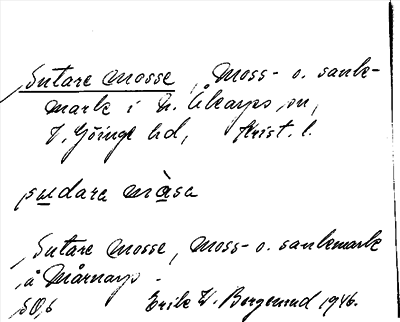 Sutare mosse, Moss- o. sank-
mark i N. Åkarps sn,
V. Göinge hd, Krist. l.
sudara måsa
Sutare mosse, moss- o. sankmark
å Mårnarp.
SO,6 Erik W. Bergemud 1946.